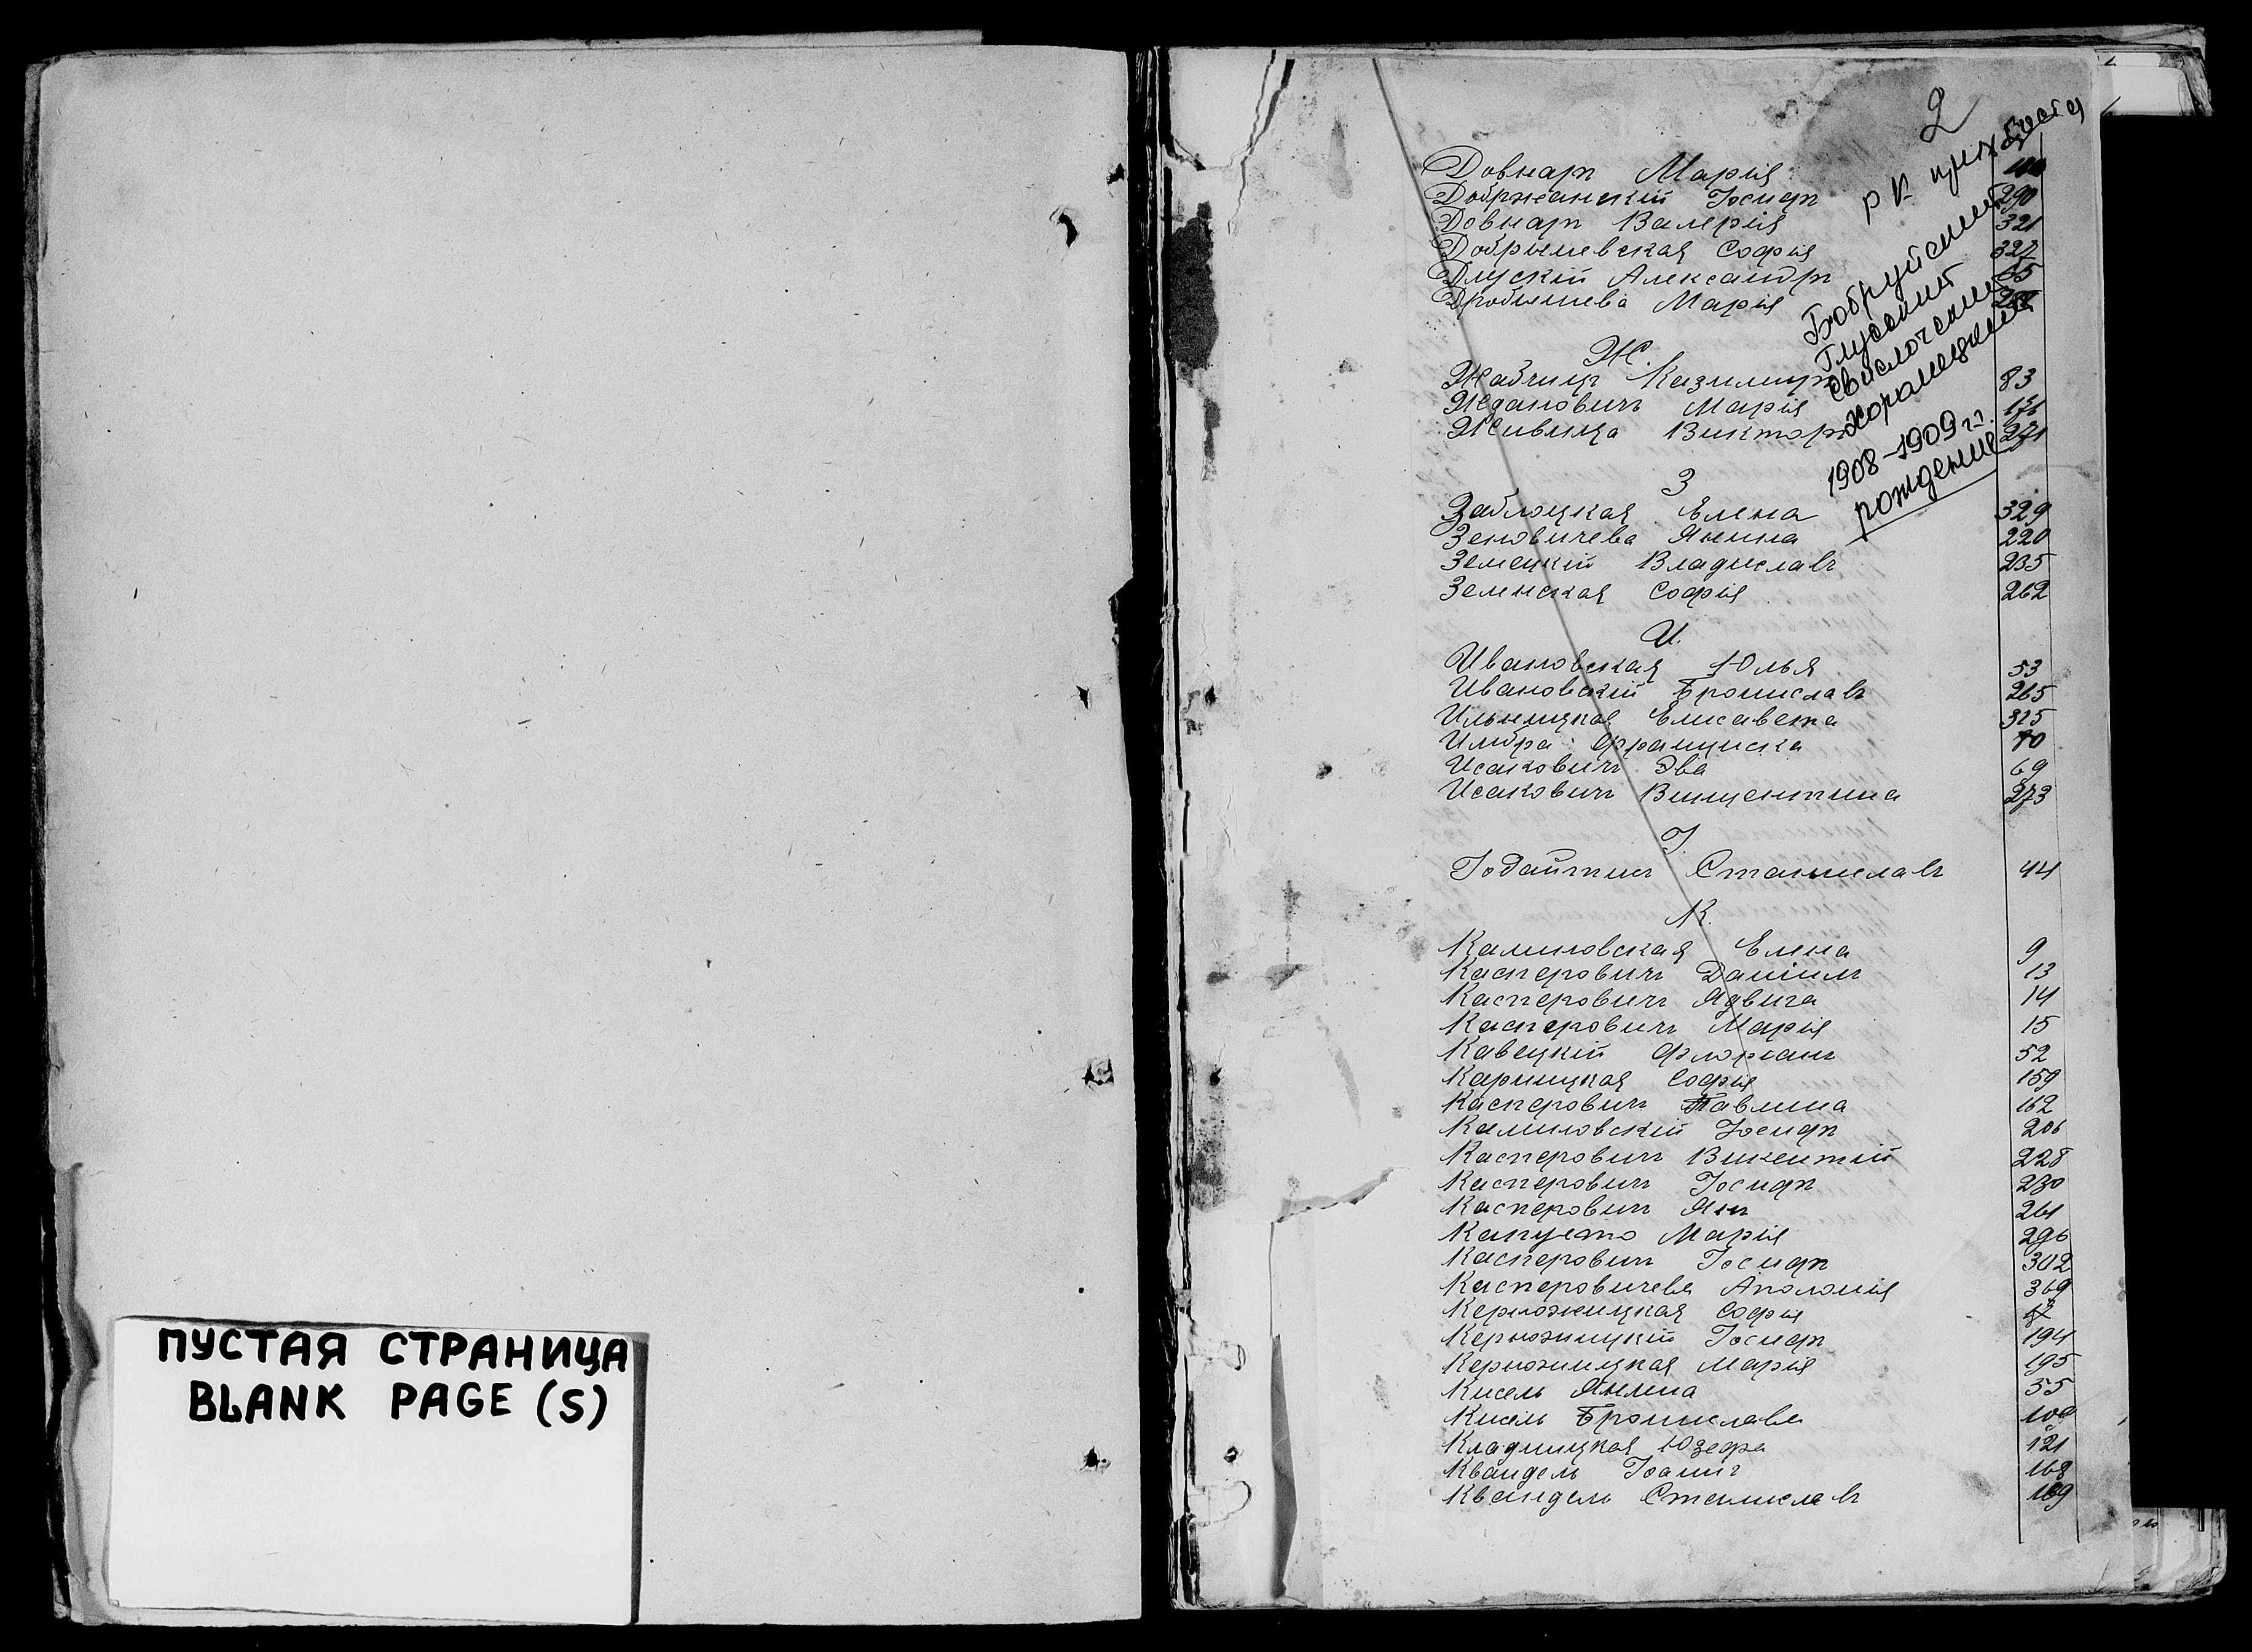 ПУСТАЯ СТРАНИЦА
BLANK PAGE (S)
2
Р К приход
Бобруйский
Глусский
Свислочский
Хоромецкий
1908-1909 гг.
рождение
Довнаръ Марія
Добржанскій Іосифъ 290
Довнаръ Валерія 321
Добрышевская Софія 327
Длускій Александръ 55
Дробышева Марія
Ж.
Жабчицъ Казимиръ 83
Ждановичъ Марія 176
Живица Викторъ 271
З
Заблоцкая Елена 329
Зеновичева Янина 220
Земецкій Владиславъ 235
Зеленская Софія 262
И.
Ивановская Юлья 53
Ивановскій Брониславъ 265
Ильницкая Елисавета 325
Франциска 70
Исаковичъ Эва 69
Исаковичъ Винцентина 273
І.
Іодайтисъ Станиславъ 44
К.
Калиновская Елена 9
Касперовичъ Даніилъ 13
Касперовичъ Ядвига 14
Касперовичъ Марія 15
Кавецкій Флоріанъ 52
Карницкая Софія 159
Касперовичъ Павлина 162
Калиновскій Іосифъ 206
Касперовичъ Викентій 228
Касперовичъ Іосифъ 230
Касперовичъ Янъ 261
Капусто Марія 296
Касперовичъ Іосифъ 302
Касперовичева Аполонія 369
Керножицкая Софія
Керножицкій Іосифъ 194
Керножицкая Марія 195
Кисель Янина 35
Кисель Бронислава 100
Кладницкая Юзефа 121
Квандель Іоаннъ 168
Квандель Станиславъ 169